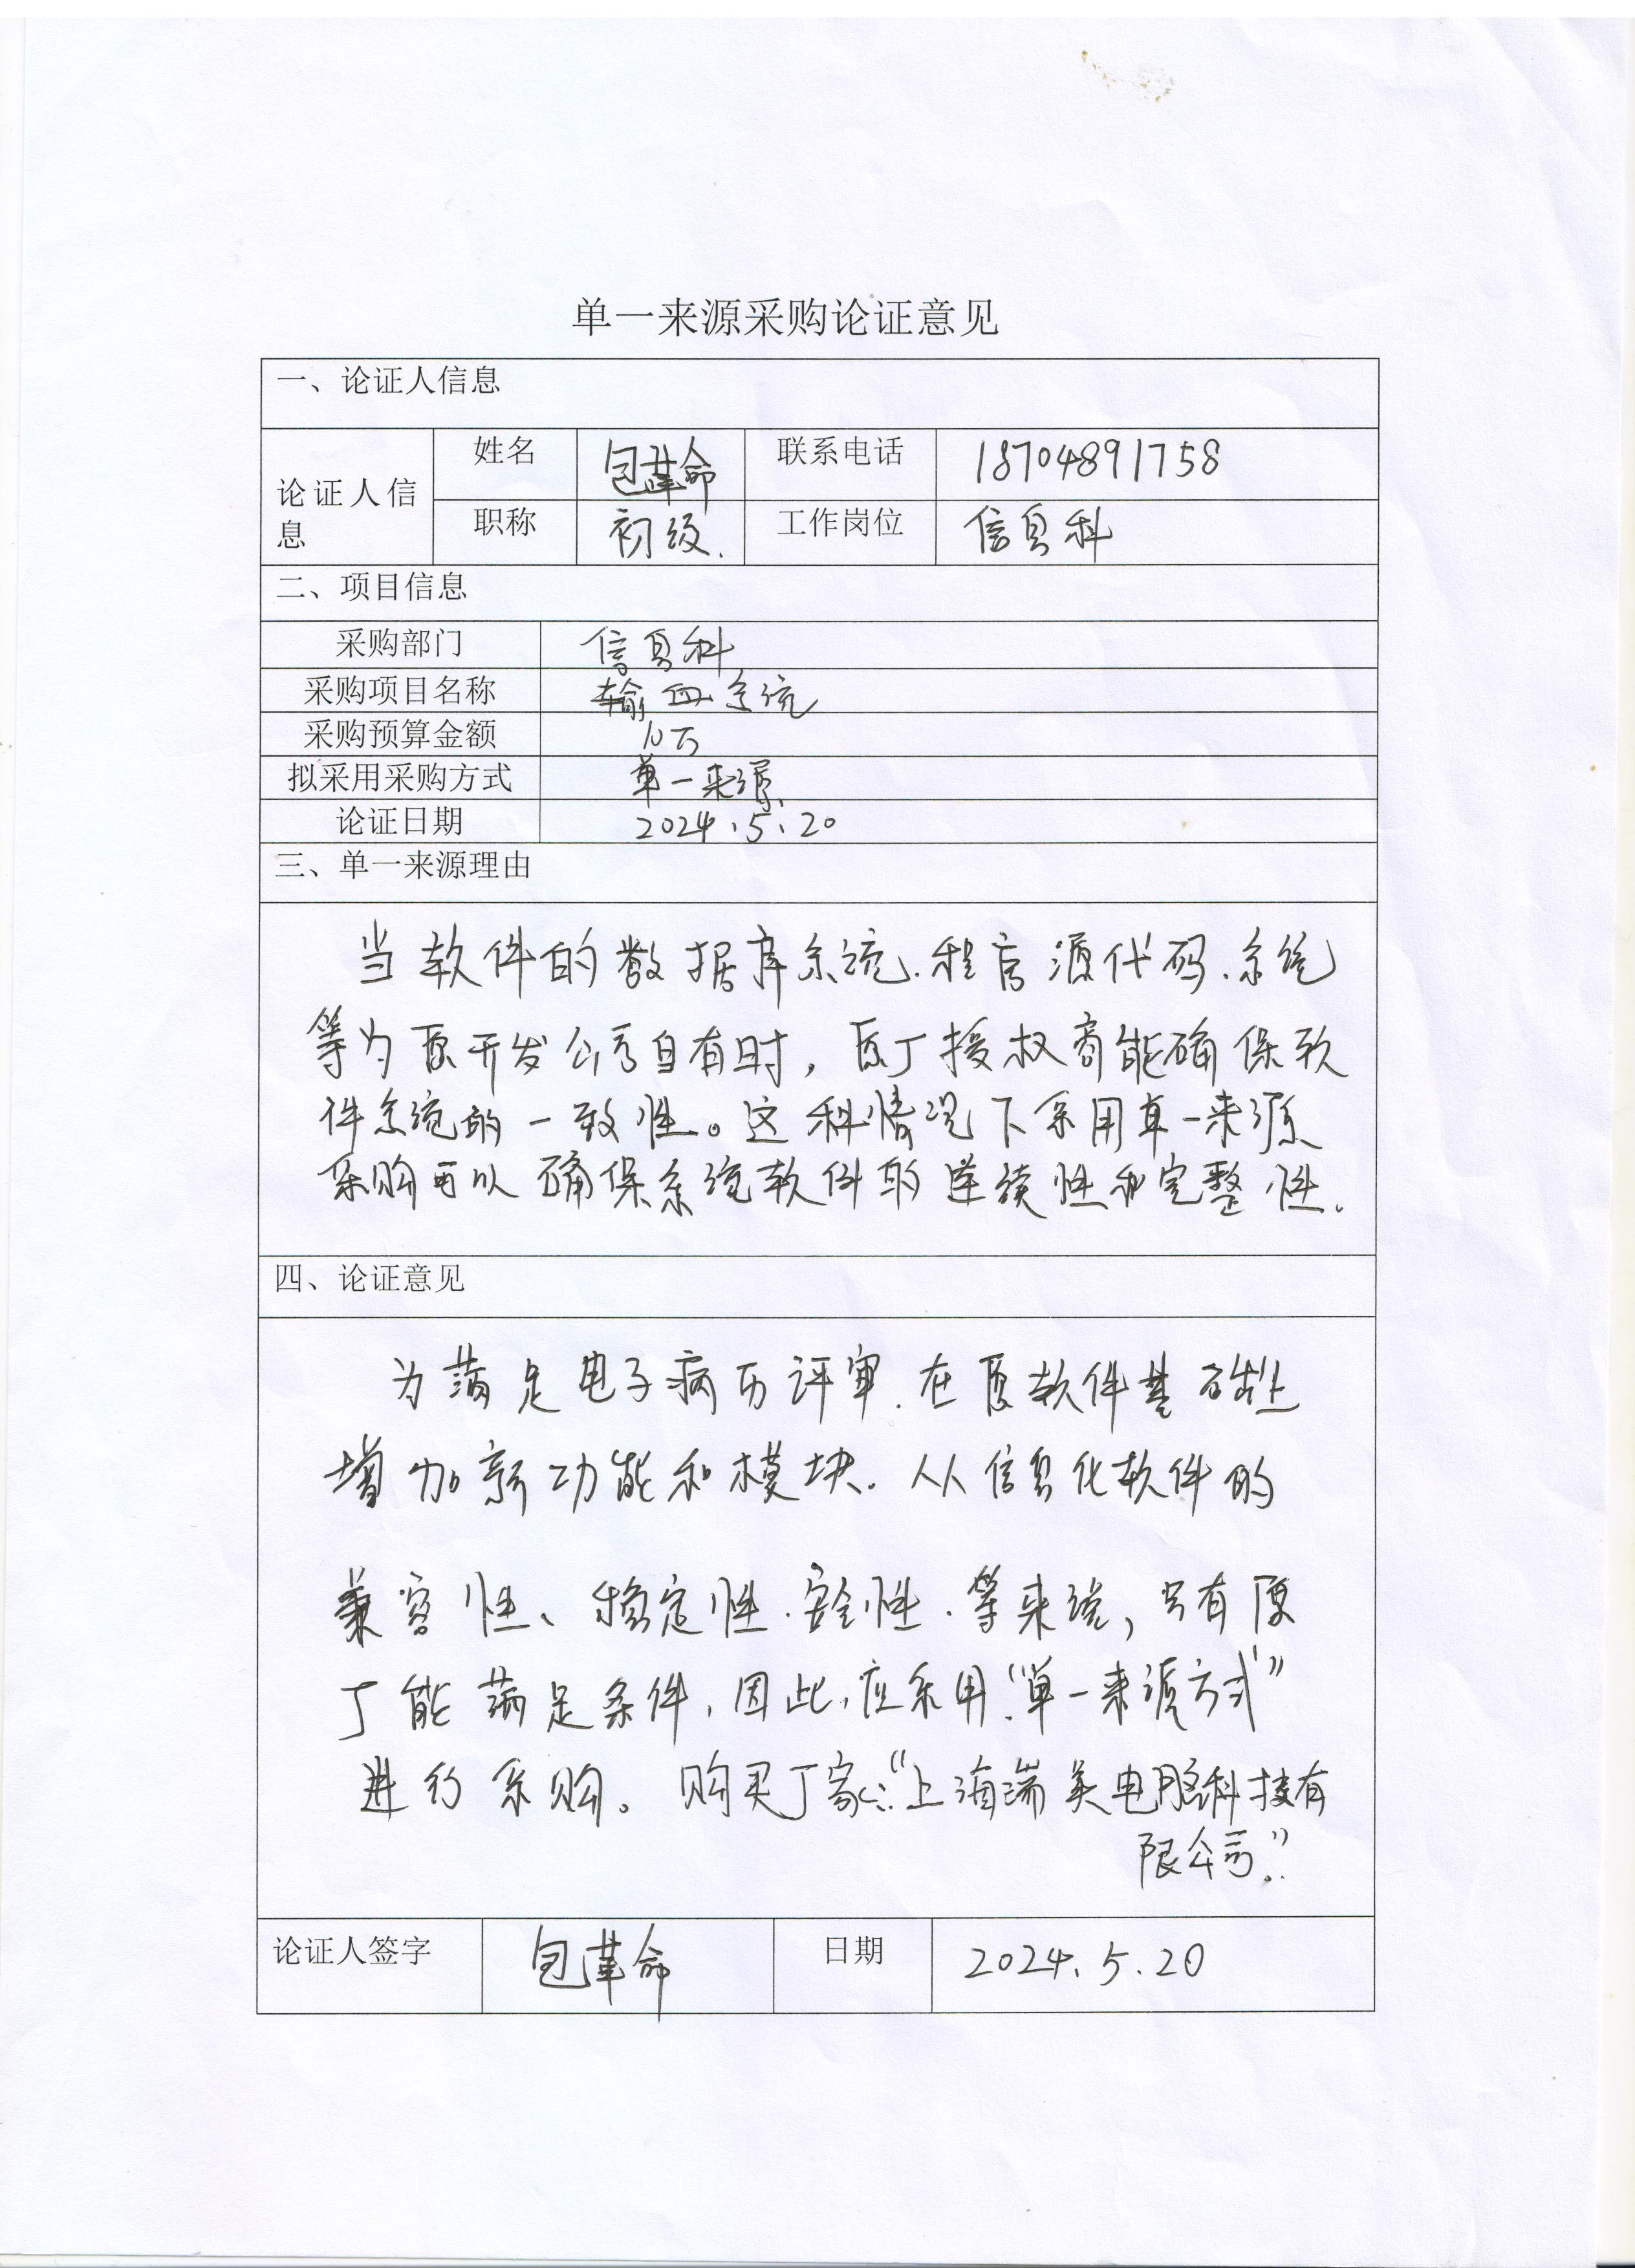 单一来源采购论证意见
一、论证人信息
论证人信息
姓名 包革命 联系电话 18704891758
职称 初级. 工作岗位 信息科
二、项目信息
采购部门 信息科
采购项目名称 输血系统
采购预算金额 10万
拟采用采购方式 单一来源
论证日期 2024.5.20
三、单一来源理由
当软件的数据库系统.程序源代码.系统
等为原开发公司自有时，原厂授权商能确保软
件系统的一致性。这种情况下采用单一来源
采购可以确保系统软件的连续性和完整性.
四、论证意见
为满足电子病历评审.在原软件基础上
增加新功能和模块.从信息化软件的
兼容性、稳定性.安全性.等来说，只有原
厂能满足条件，因此，应采用“单一来源方式”
进行采购。购买厂家：“上海瑞美电脑科技有
限公司.”
论证人签字 包革命 日期 2024.5.20